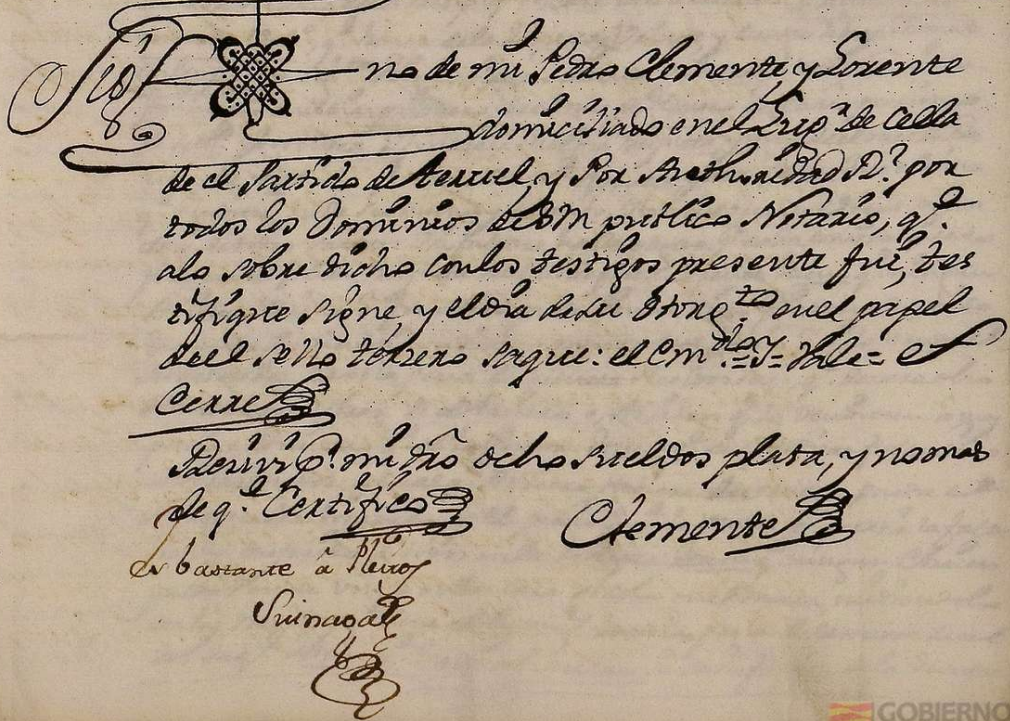 Sig no de mi Pedro Clemente y Lorente
domiciliado en el Lug.r de Cella
de el Partido de Teruel, y Por Authoridad R.l por
todos los Dominios de SM publico Notario, q.e
alo sobre dicho con los testigos presente fui, tes
tifique signe, y el dia de su otorg.to en el papel
de el sello tercero saque: el Cm.do = y = Vale = et
Cerre
Reciví p.r mi dro ocho sueldos plata, y no mas
de q.e Certifico
Clemente
es bastante â Pleitos
GOBIERNO